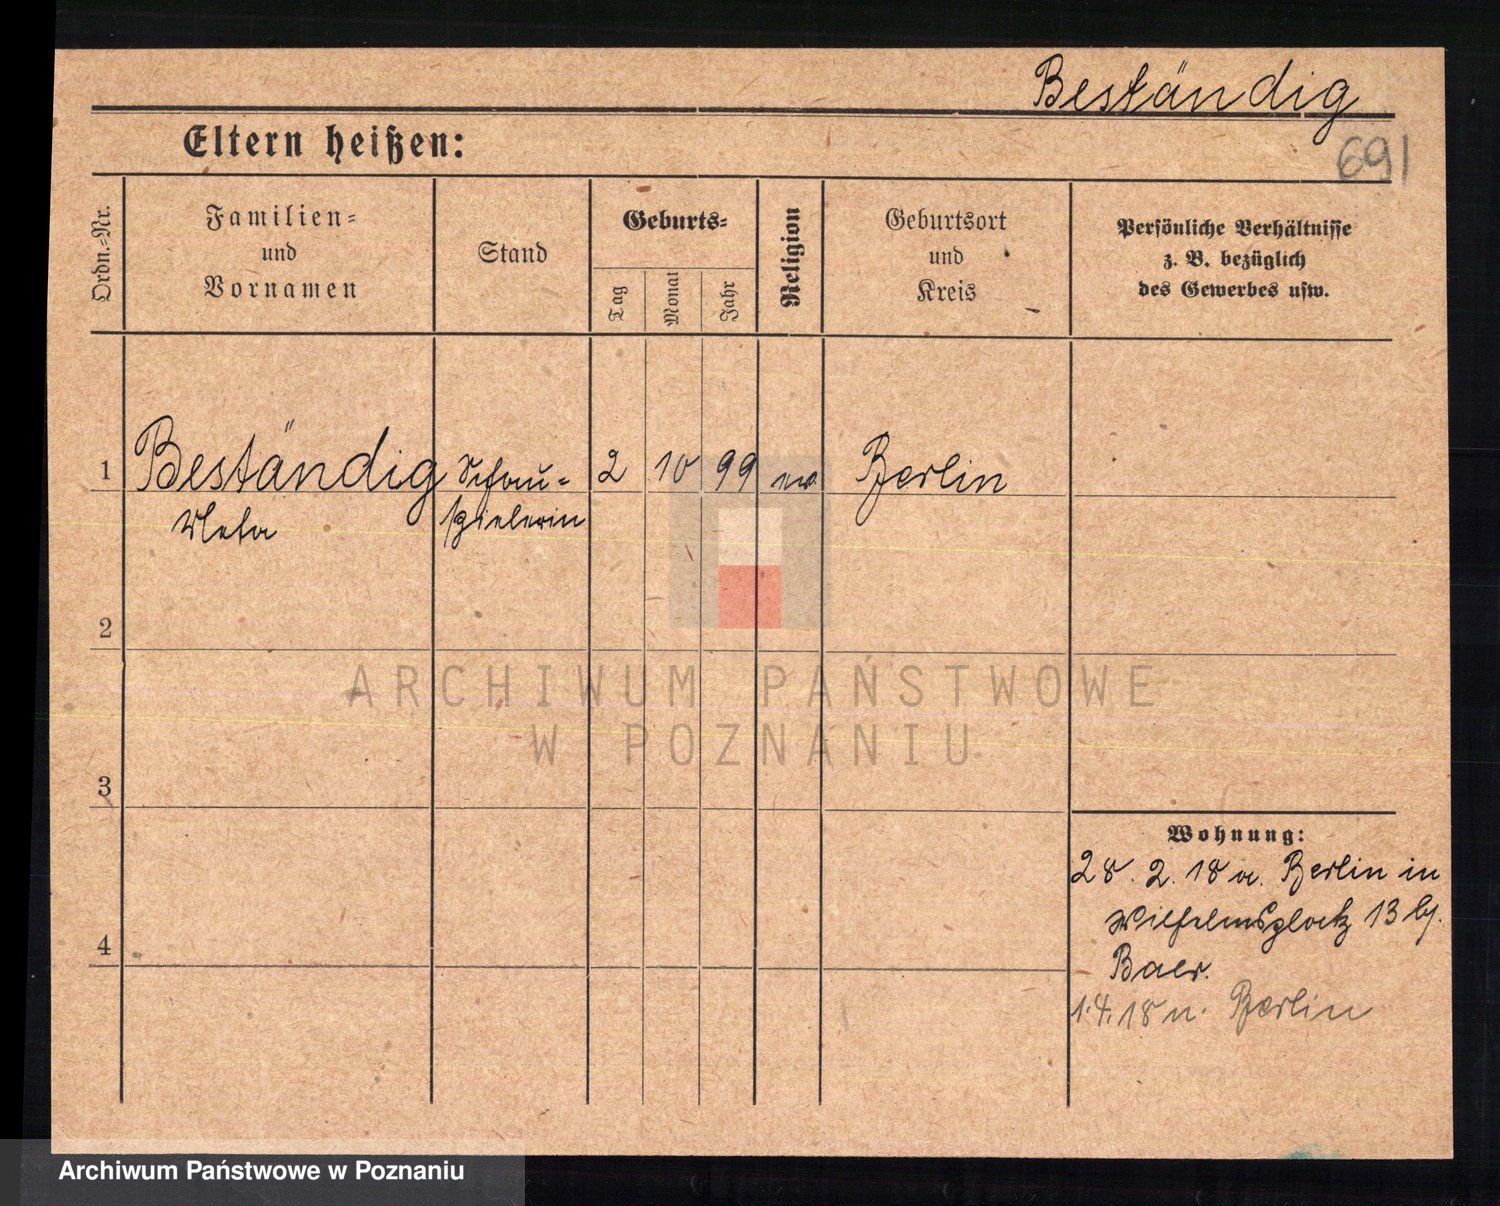 Beständig
Eltern heißen:
691
Ordn.-Nr.
Familien-
und
Vornamen
Stand
Geburts-
Tag
Monat
Jahr
Religion
Geburtsort
und
Kreis
Persönliche Verhältnisse
z. B. bezüglich
des Gewerbes usw.
1
Beständig
Meta
Schau-
spielerin
2
10
99
Berlin
2
3
4
Wohnung:
28. 2. 18 v. Berlin in
Wilhelmsplatz 13 bj.
Baer.
1.4.18 n. Berlin
ARCHIWUM PAŃSTWOWE
W POZNANIU
Archiwum Państwowe w Poznaniu